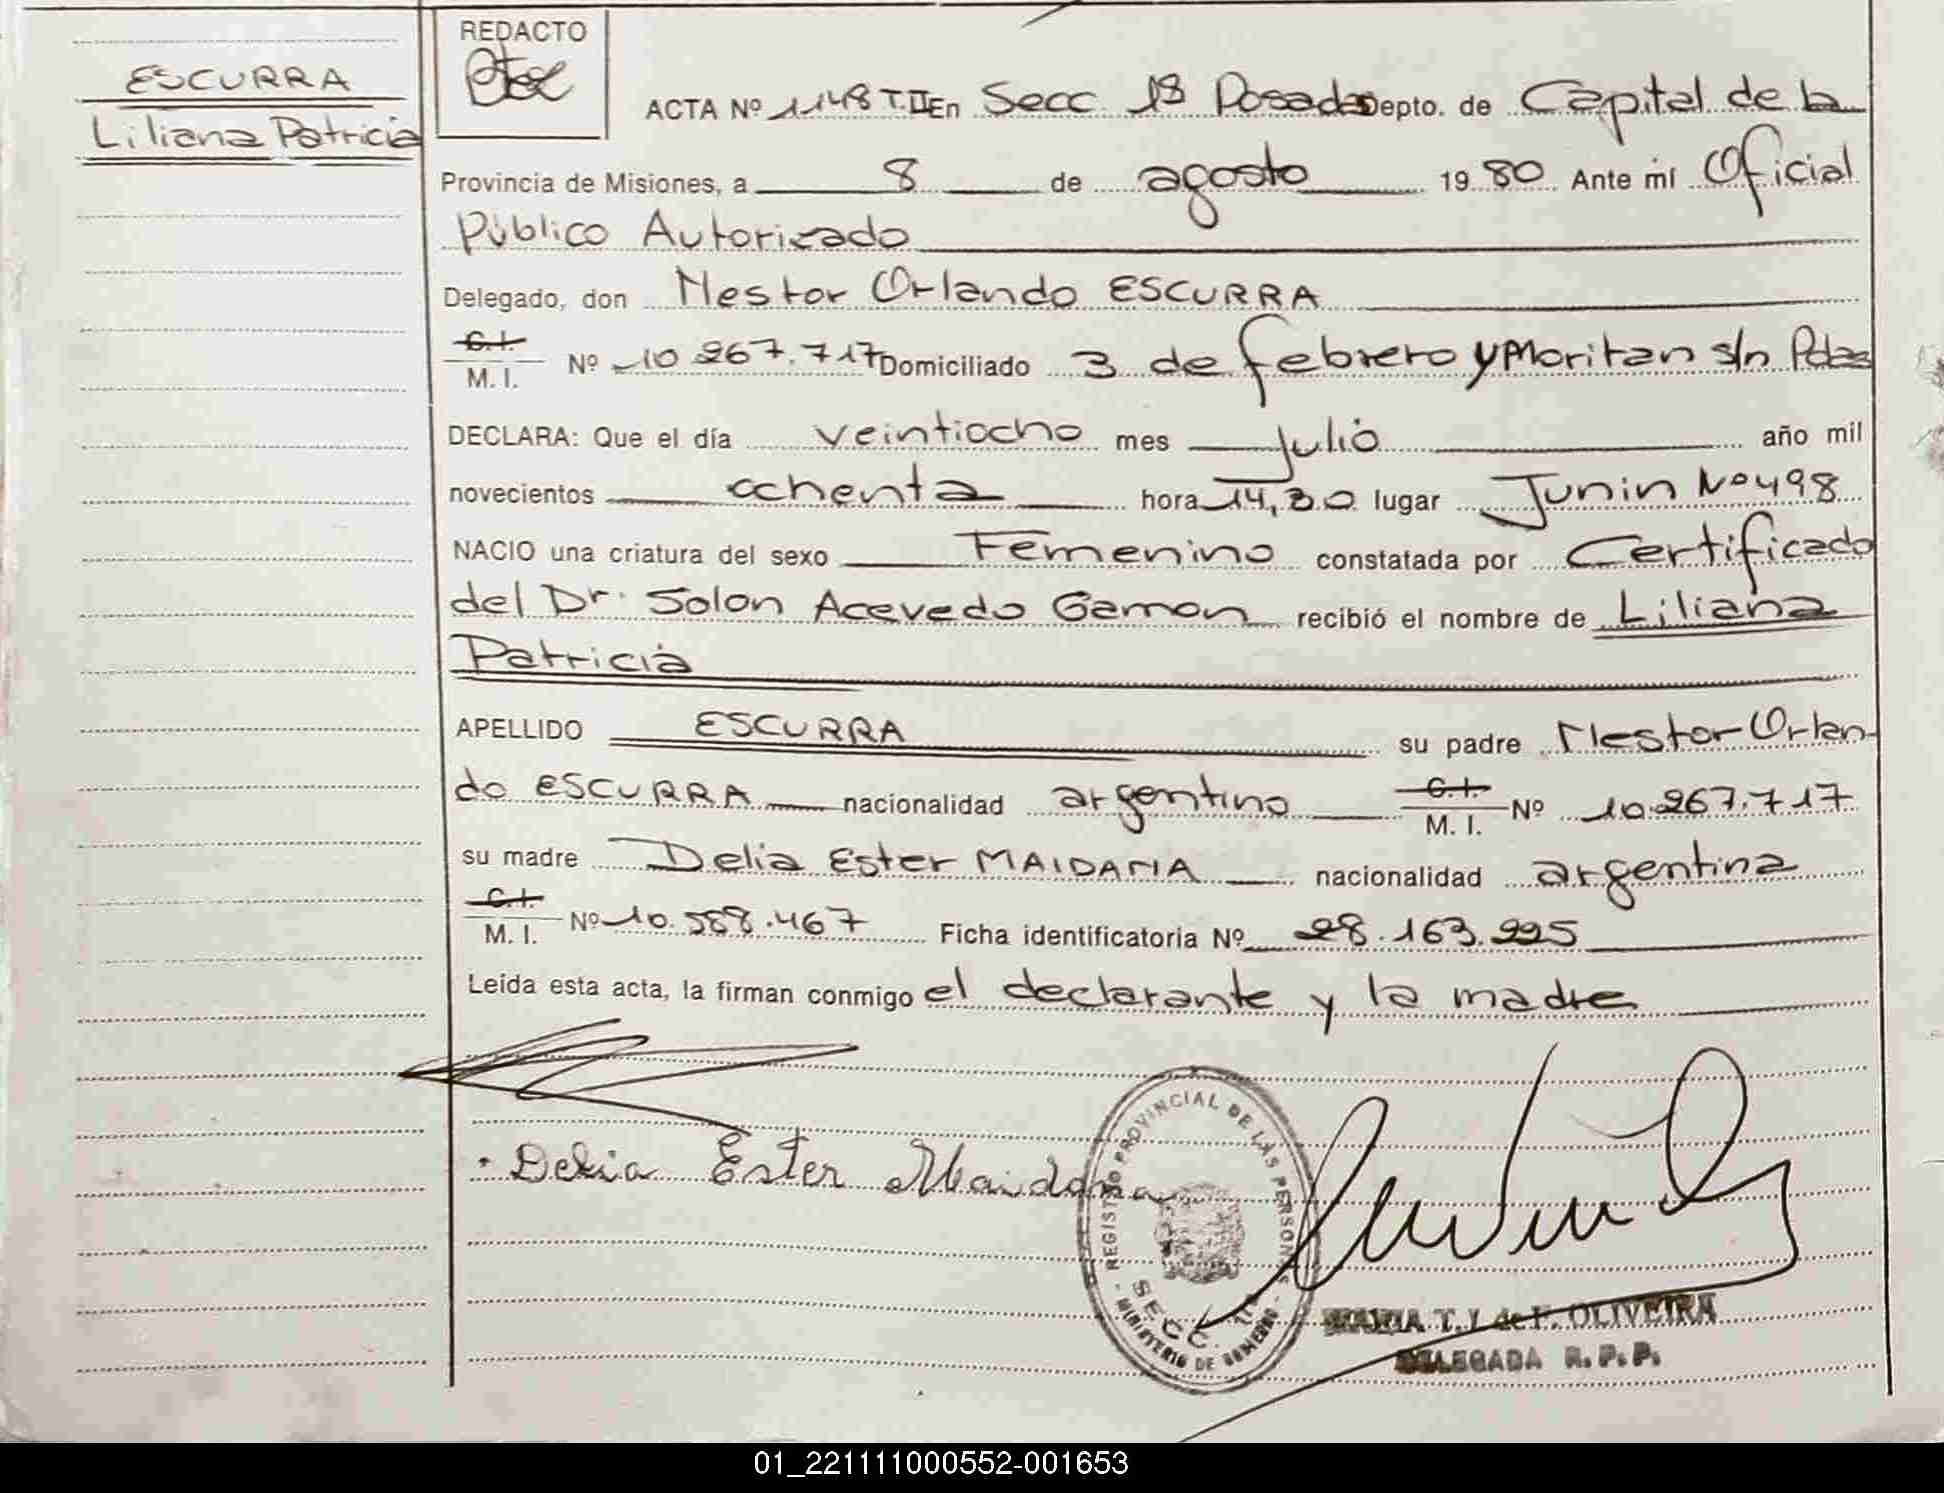 ESCURRA
Liliana Patricia
REDACTO
ACTA Nº 1148 T.II En Secc 1ª Posadas Depto. de Capital de la
Provincia de Misiones, a 8 de agosto 19 80 Ante mí Oficial
Público Autorizado
Delegado, don Nestor Orlando ESCURRA
C.I.
M. I. Nº 10.267.717 Domiciliado 3 de febrero y Moritan s/n Pdas
DECLARA: Que el día veintiocho mes Julio año mil
novecientos ochenta hora 14,30 lugar Junin Nº 498
NACIO una criatura del sexo Femenino constatada por Certificado
del Dr. Solon Acevedo Gamon recibió el nombre de Liliana
Patricia
APELLIDO ESCURRA su padre Nestor Orlan-
do ESCURRA nacionalidad argentino C.I.
M. I. Nº 10.267.717
su madre Delia Ester MAIDANA nacionalidad argentina
C.I.
M. I. Nº 10.588.467 Ficha identificatoria Nº 28.163.225
Leída esta acta, la firman conmigo el declarante y la madre
Delia Ester Maidana
REGISTRO PROVINCIAL DE LAS PERSONAS
SECC. 1ª
- MINISTERIO DE GOBIERNO -
MARIA T. I. de F. OLIVEIRA
DELEGADA R. P. P.
01_221111000552-001653